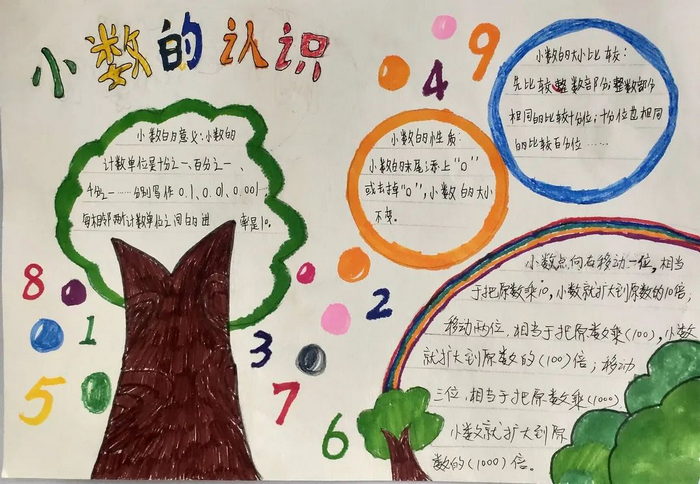 小数的认识
小数的意义:小数的
计数单位是十分之一、百分之一、
千分之一……分别写作0.1、0.01、0.001……
每相邻两个计数单位之间的进率是10。
小数的性质:
小数的末尾添上"0"
或去掉"0",小数的大小
不变。
小数的大小比较:
先比较整数部分;整数部分
相同的比较十分位;十分位也相同
的比较百分位……
小数点向右移动一位,相当
于把原数乘10,小数就扩大到原数的10倍,
移动两位,相当于把原数乘(100),小数
就扩大到原数的(100)倍;移动
三位,相当于把原数乘(1000)
小数就扩大到原
数的(1000)倍。
9
4
8
1
5
2
3
7
6